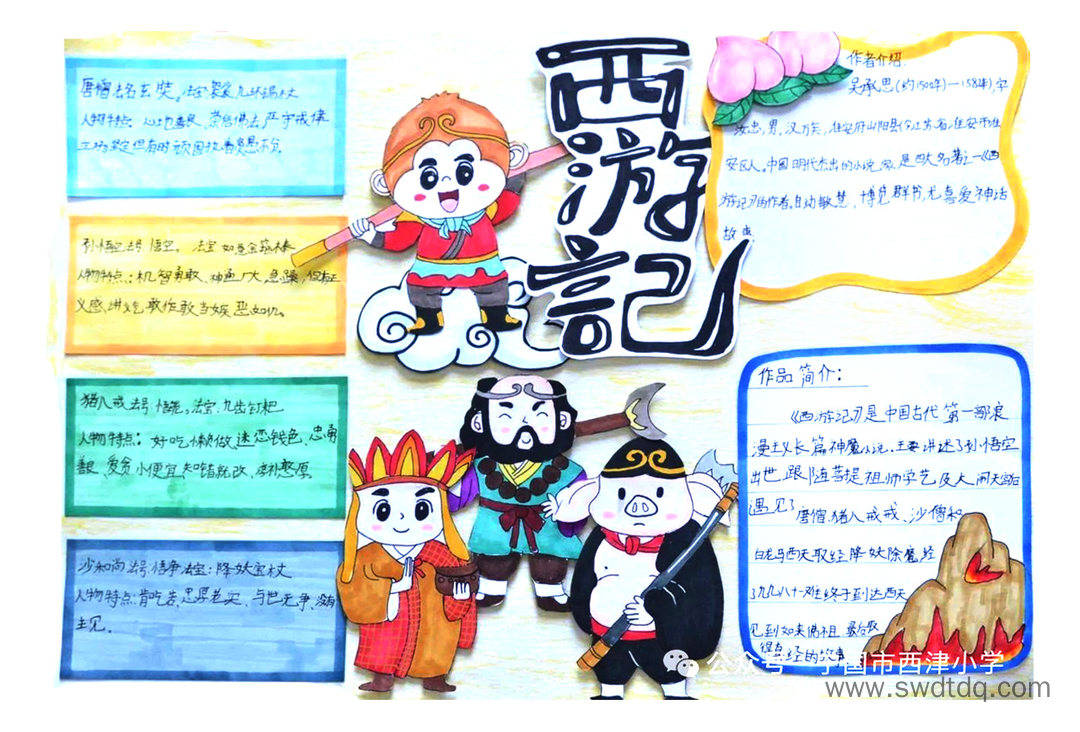 唐僧法名玄奘。法宝袈裟九环锡杖
人物特点：心地善良、崇信佛法严守戒律
立场坚定但有时顽固执着贤愚不分
孙悟空法号悟空。法宝如意金箍棒
人物特点：机智勇敢、神通广大、急躁，但有正
义感讲义气敢作敢当嫉恶如仇。
猪八戒法号悟能。法宝九齿钉耙
人物特点：好吃懒做迷恋钱色，忠勇
善良、爱贪小便宜知错就改、率朴憨厚
沙和尚法号悟净法宝：降妖宝杖
人物特点肯吃苦、忠厚老实、与世无争，没有
主见。
西游記
作者介绍
吴承恩(约1500年)一1582年)，字
汝忠，男，汉族，淮安府山阳县(今江苏省淮安市淮
安区人。中国明代杰出的小说家，是四大名著之一《西
游记》的作者。自幼敏慧，博览群书，尤喜爱神话
故事
作品简介：
《西游记》是中国古代第一部浪
漫主义长篇神魔小说。主要讲述了孙悟空
出世跟随菩提祖师学艺及大闹天宫后
遇见了唐僧、猪八戒戒、沙僧和
白龙马西天取经降妖除魔经
了九九八十一难终于到达西天
见到如来佛祖最后取
得真经的故事
公众号 宁国市西津小学
www.swdtdq.com